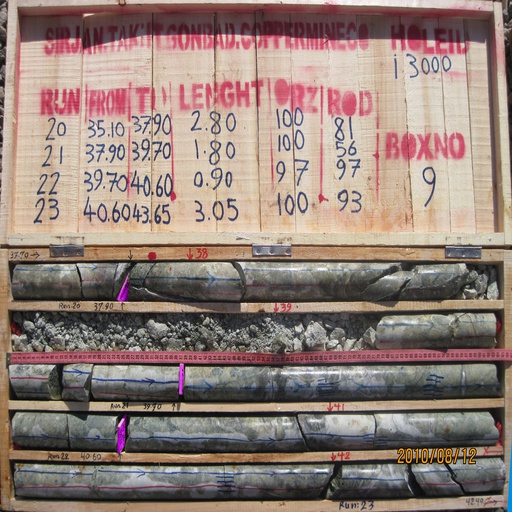 SIRJAN.TAKHT.GONBAD.COPPERMINECO HOLEID
i 3000
RUN FROM TO LENGHT ORZ RQD
20 35.10 37.90 2.80 100 81
21 37.90 39.70 1.80 100 56
BOXNO
22 39.70 40.60 0.90 97 97
9
23 40.60 43.65 3.05 100 93
38
Run.20 37.90 ↑
↓39
Run.21 39.70
↓41
2010/08/12
Run.22 40.60 ↑
↓42
Run:23